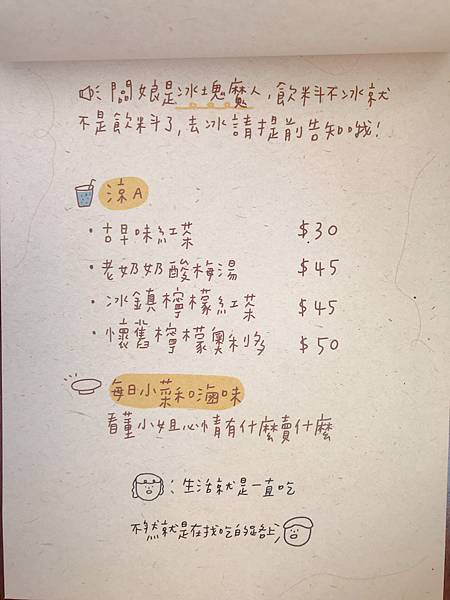 闆娘是冰塊魔人,飲料不冰就
不是飲料了,去冰請提前告知哦!
涼A
·古早味紅茶 $30
·老奶奶酸梅湯 $45
·冰鎮檸檬紅茶 $45
·懷舊檸檬奧利多 $50
每日小菜和滷味
看董小姐心情有什麼賣什麼
:生活就是一直吃
不然就是在找吃的路上